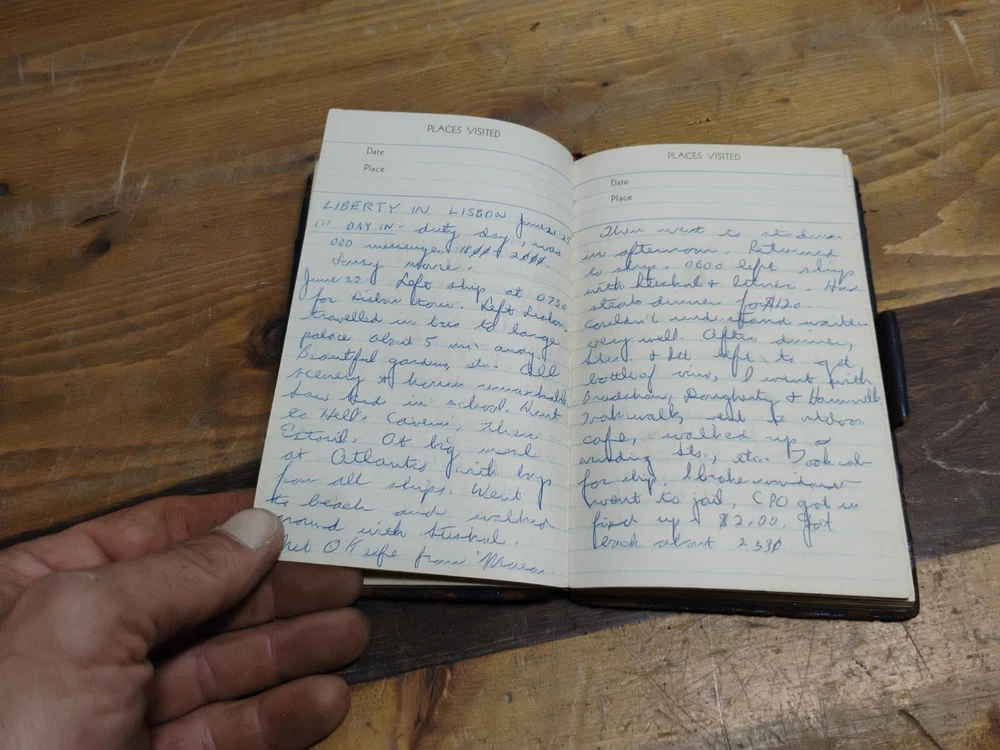 PLACES VISITED
Date
Place
LIBERTY IN LISBON June 21,
1ST DAY IN - duty day. I was
OOD messenger 1800 - 2000.
Lousy movie.
June 22 Left ship at 0730
for Lisbon tour. Left Lisbon
travelled in bus to large
palace about 5 min away.
Beautiful gardens, etc. All
scenery & homes remarkable
Saw kid in school. Went
to Hell's Cavern, then
Estoril. Ate big meal
at Atlantis with boys
from all ships. Went
to beach and walked
around with Steshal.
Met O'Keefe from Macon
PLACES VISITED
Date
Place
Then went to
in afternoon. Returned
to ship. 0600 left ship
with Steshal & Had
steak dinner for $1.20.
Couldn't understand waiter
very well. After dinner,
Ste. & left to get
bottle of vino, I went with
Bradshaw, Dougherty & Hammell
Took walk, went to outdoor
cafe, walked up
winding sts., etc. Took cab
for ship. I broke window
went to jail, CPO got us
fixed up - $2.00. Got
back about 2330.